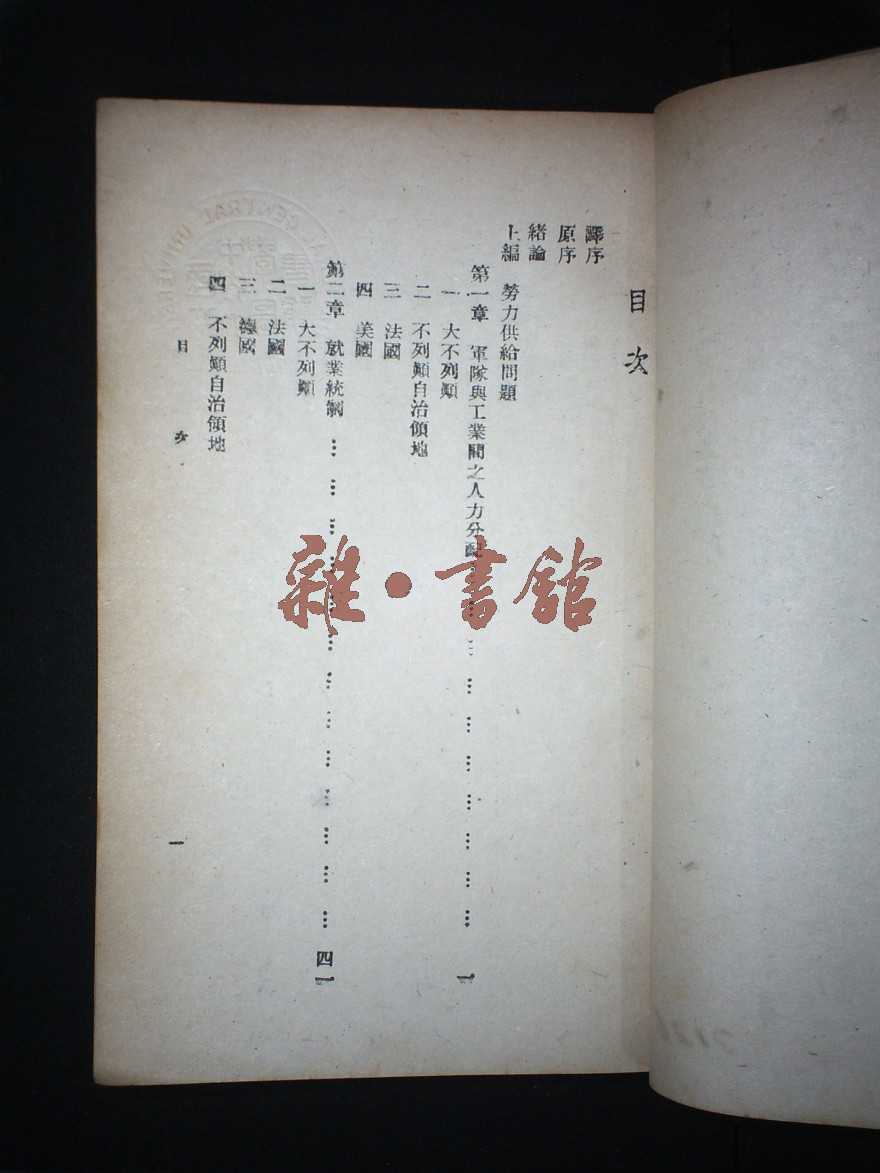 目次
譯序
原序
緒論
上編　勞力供給問題
第一章　軍隊與工業間之人力分配………………………………一
一　大不列顛
二　不列顛自治領地
三　法國
四　美國
第二章　就業統制………………………………………四一
一　大不列顛
二　法國
三　德國
四　不列顛自治領地
目次
一
雜·書館
CENTRAL UNIVERS